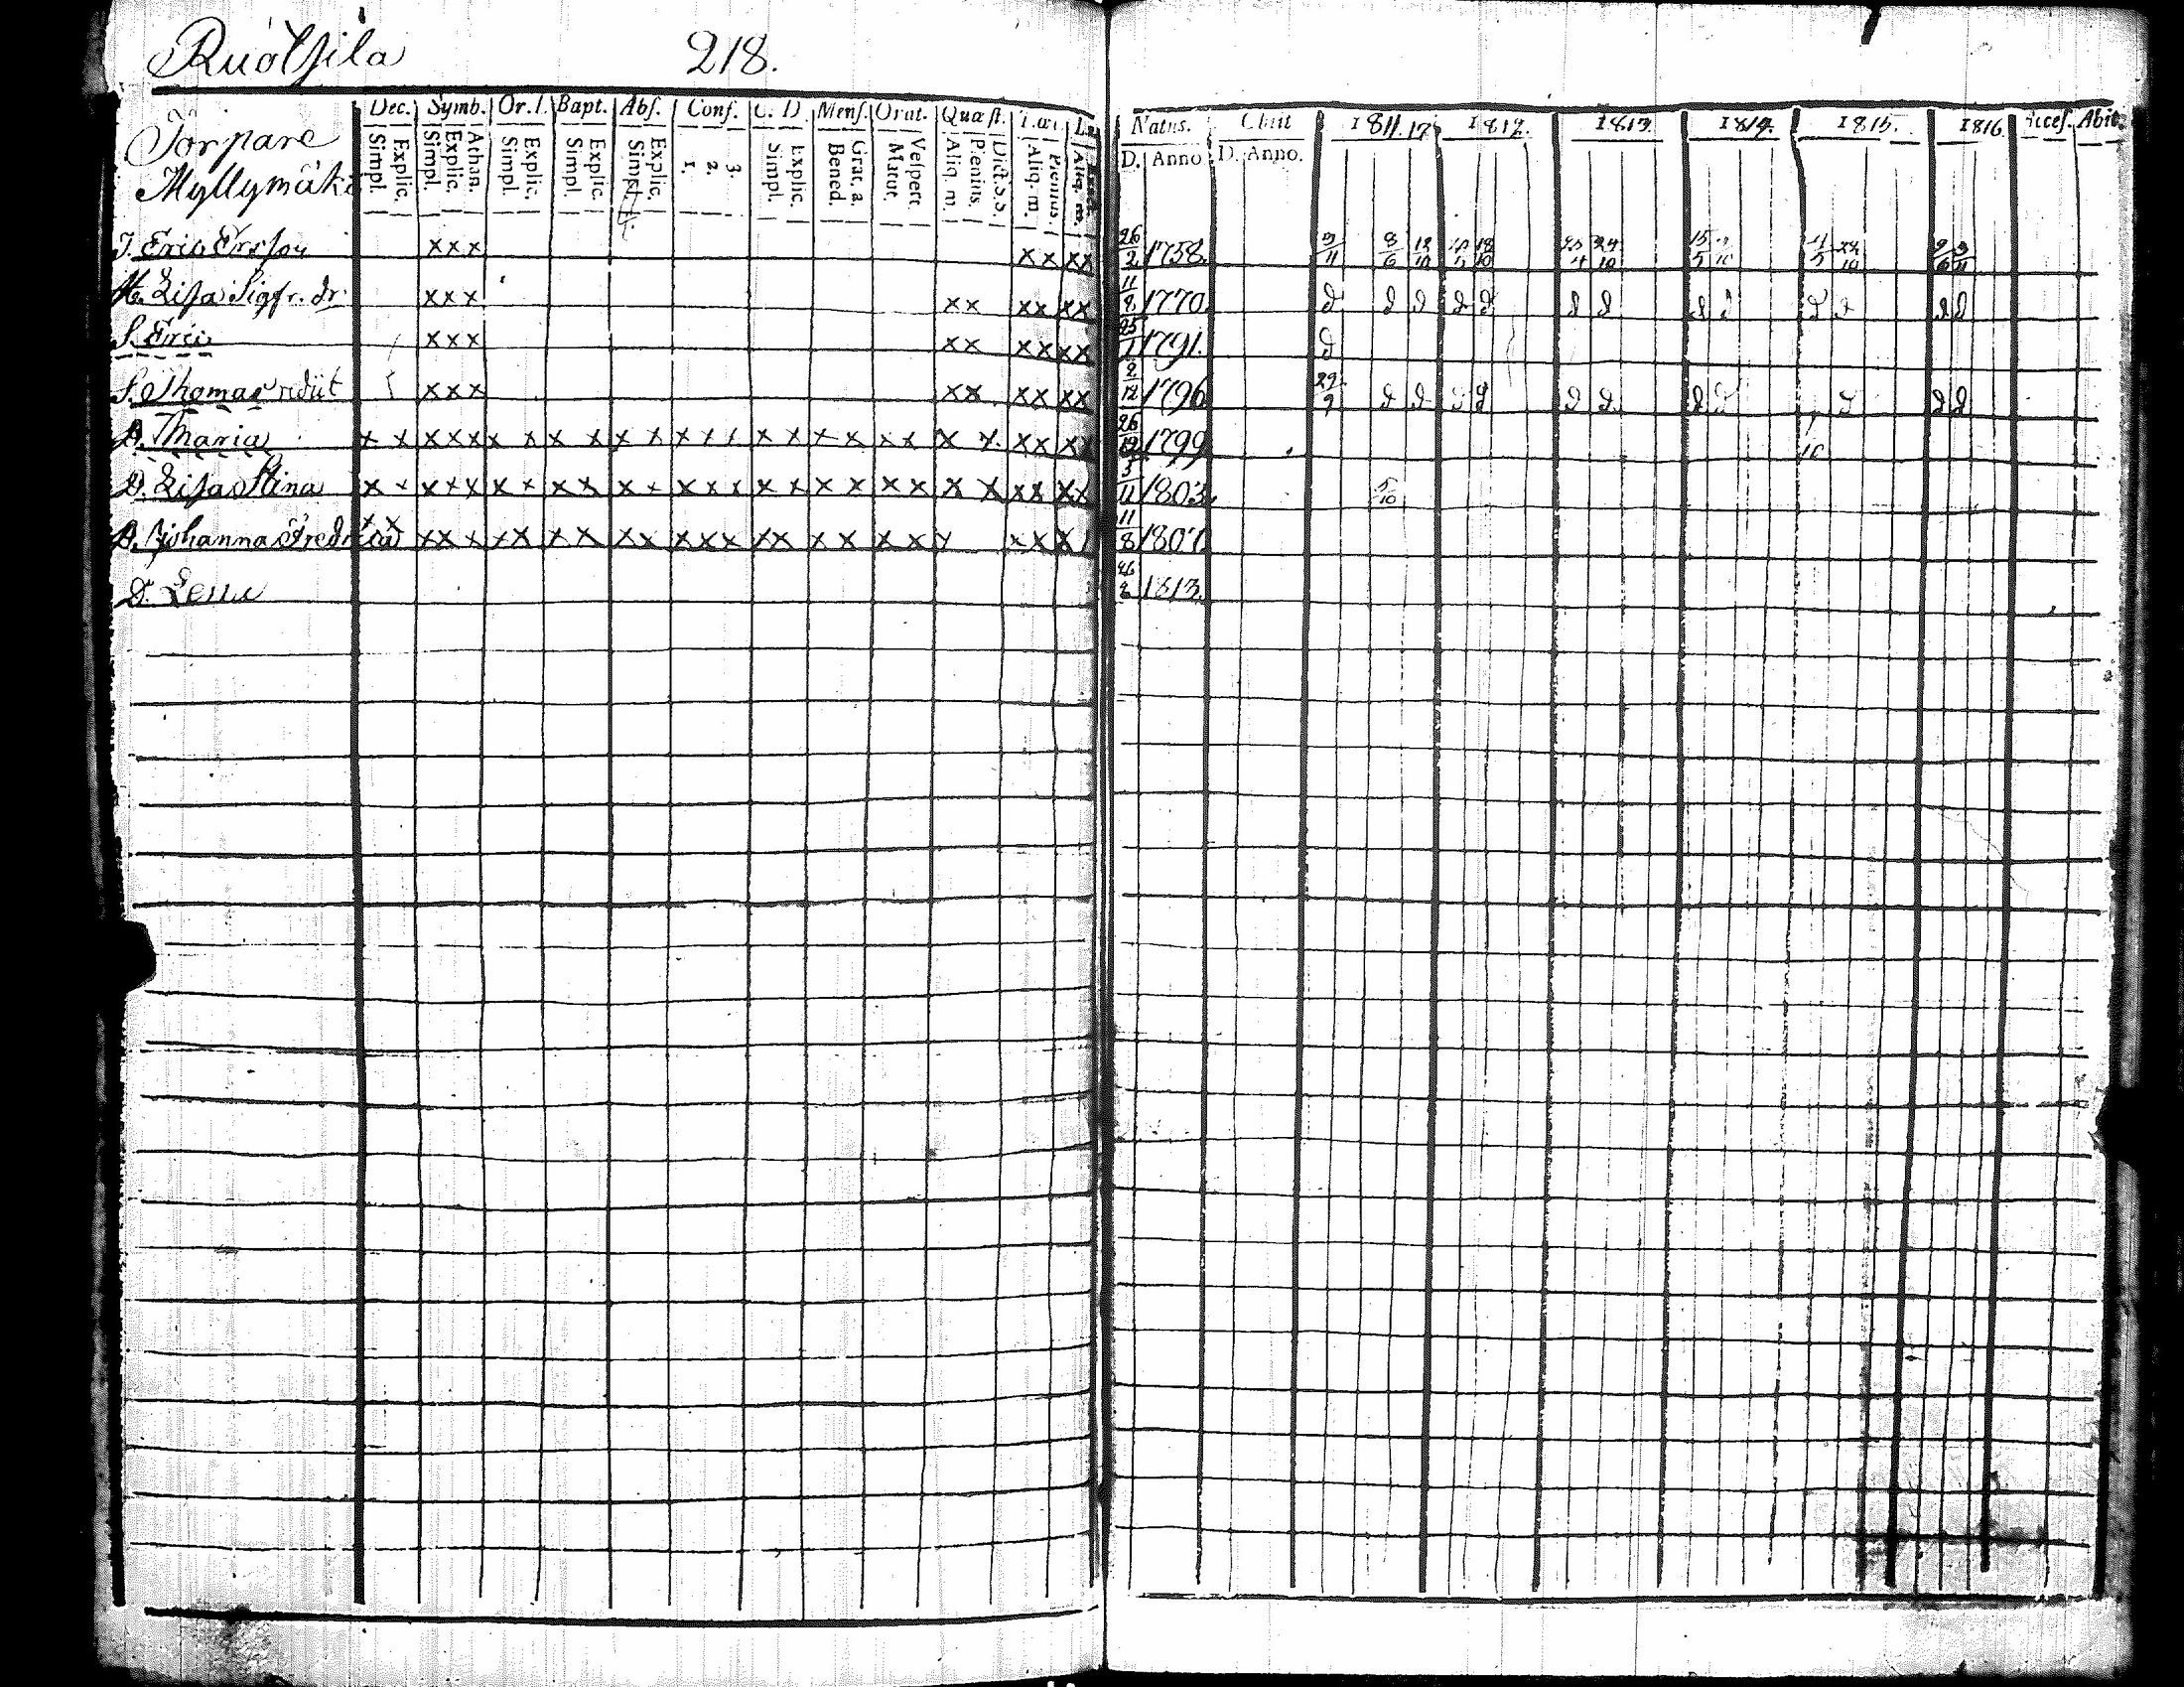 Ruotsila 218.
Torpare
Myllymäki
Dec. Symb. Or. l. Bapt. Abs. Conf. C. D. Mens. Orat. Quæst. Natus. Obiit 1811.12 1812. 1813. 1814. 1815. 1816. Acces. Abit.
Simpl. Explic. Simpl. Explic. Athan. Simpl. Explic. Simpl. Explic. Simpl. Explic. 1. 2. 3. Simpl. Explic. Bened. Grat. a. Matut. Vespert. Aliq. m. Plenius. Dict. S. S. Aliq. m. Plenius. Aliq. m. D. Anno D. Anno.
T. Eric Ersson x x x x x x x 26/2 1758. 3/11 8/6 18/10 18/10 24/10 9/6 3/11
H. Lisa Sigfr. dr. x x x x x x x x x 11/9 1770. d d d d d d d d d d d
S. Eric x x x x x x x x x 25/1 1791. d
S. Thomas rediit x x x x x x x x x 2/12 1796 29/9 d d d d d d d d d d
D. Maria x x x x x x x x x x x x x x x x x x x x x x x x x x 26/12 1799
D. Lisa Stina x x x x x x x x x x x x x x x x x x x x x x x x x x 5/11 1803. 5/10
D. Johanna Fredrica x x x x x x x x x x x x x x x x x x x x x x x x x 11/8 1807
D. Lena 1813.